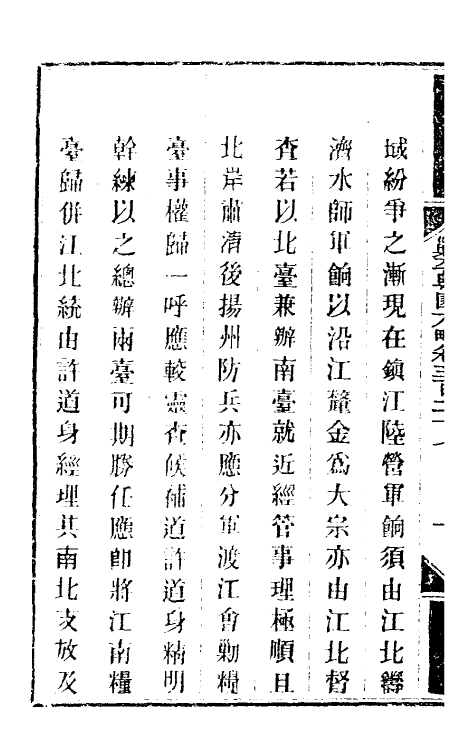 域紛爭之漸現在鎮江陸營軍餉須由江北籌
濟水師軍餉以沿江釐金爲大宗亦由江北督
查若以北臺兼辦南臺就近經管事理極順且
北岸肅清後揚州防兵亦應分軍渡江會勦糧
臺事權歸一呼應較靈查候補道許道身精明
幹練以之總辦兩臺可期勝任應即將江南糧
臺歸併江北統由許道身經理其南北支放及